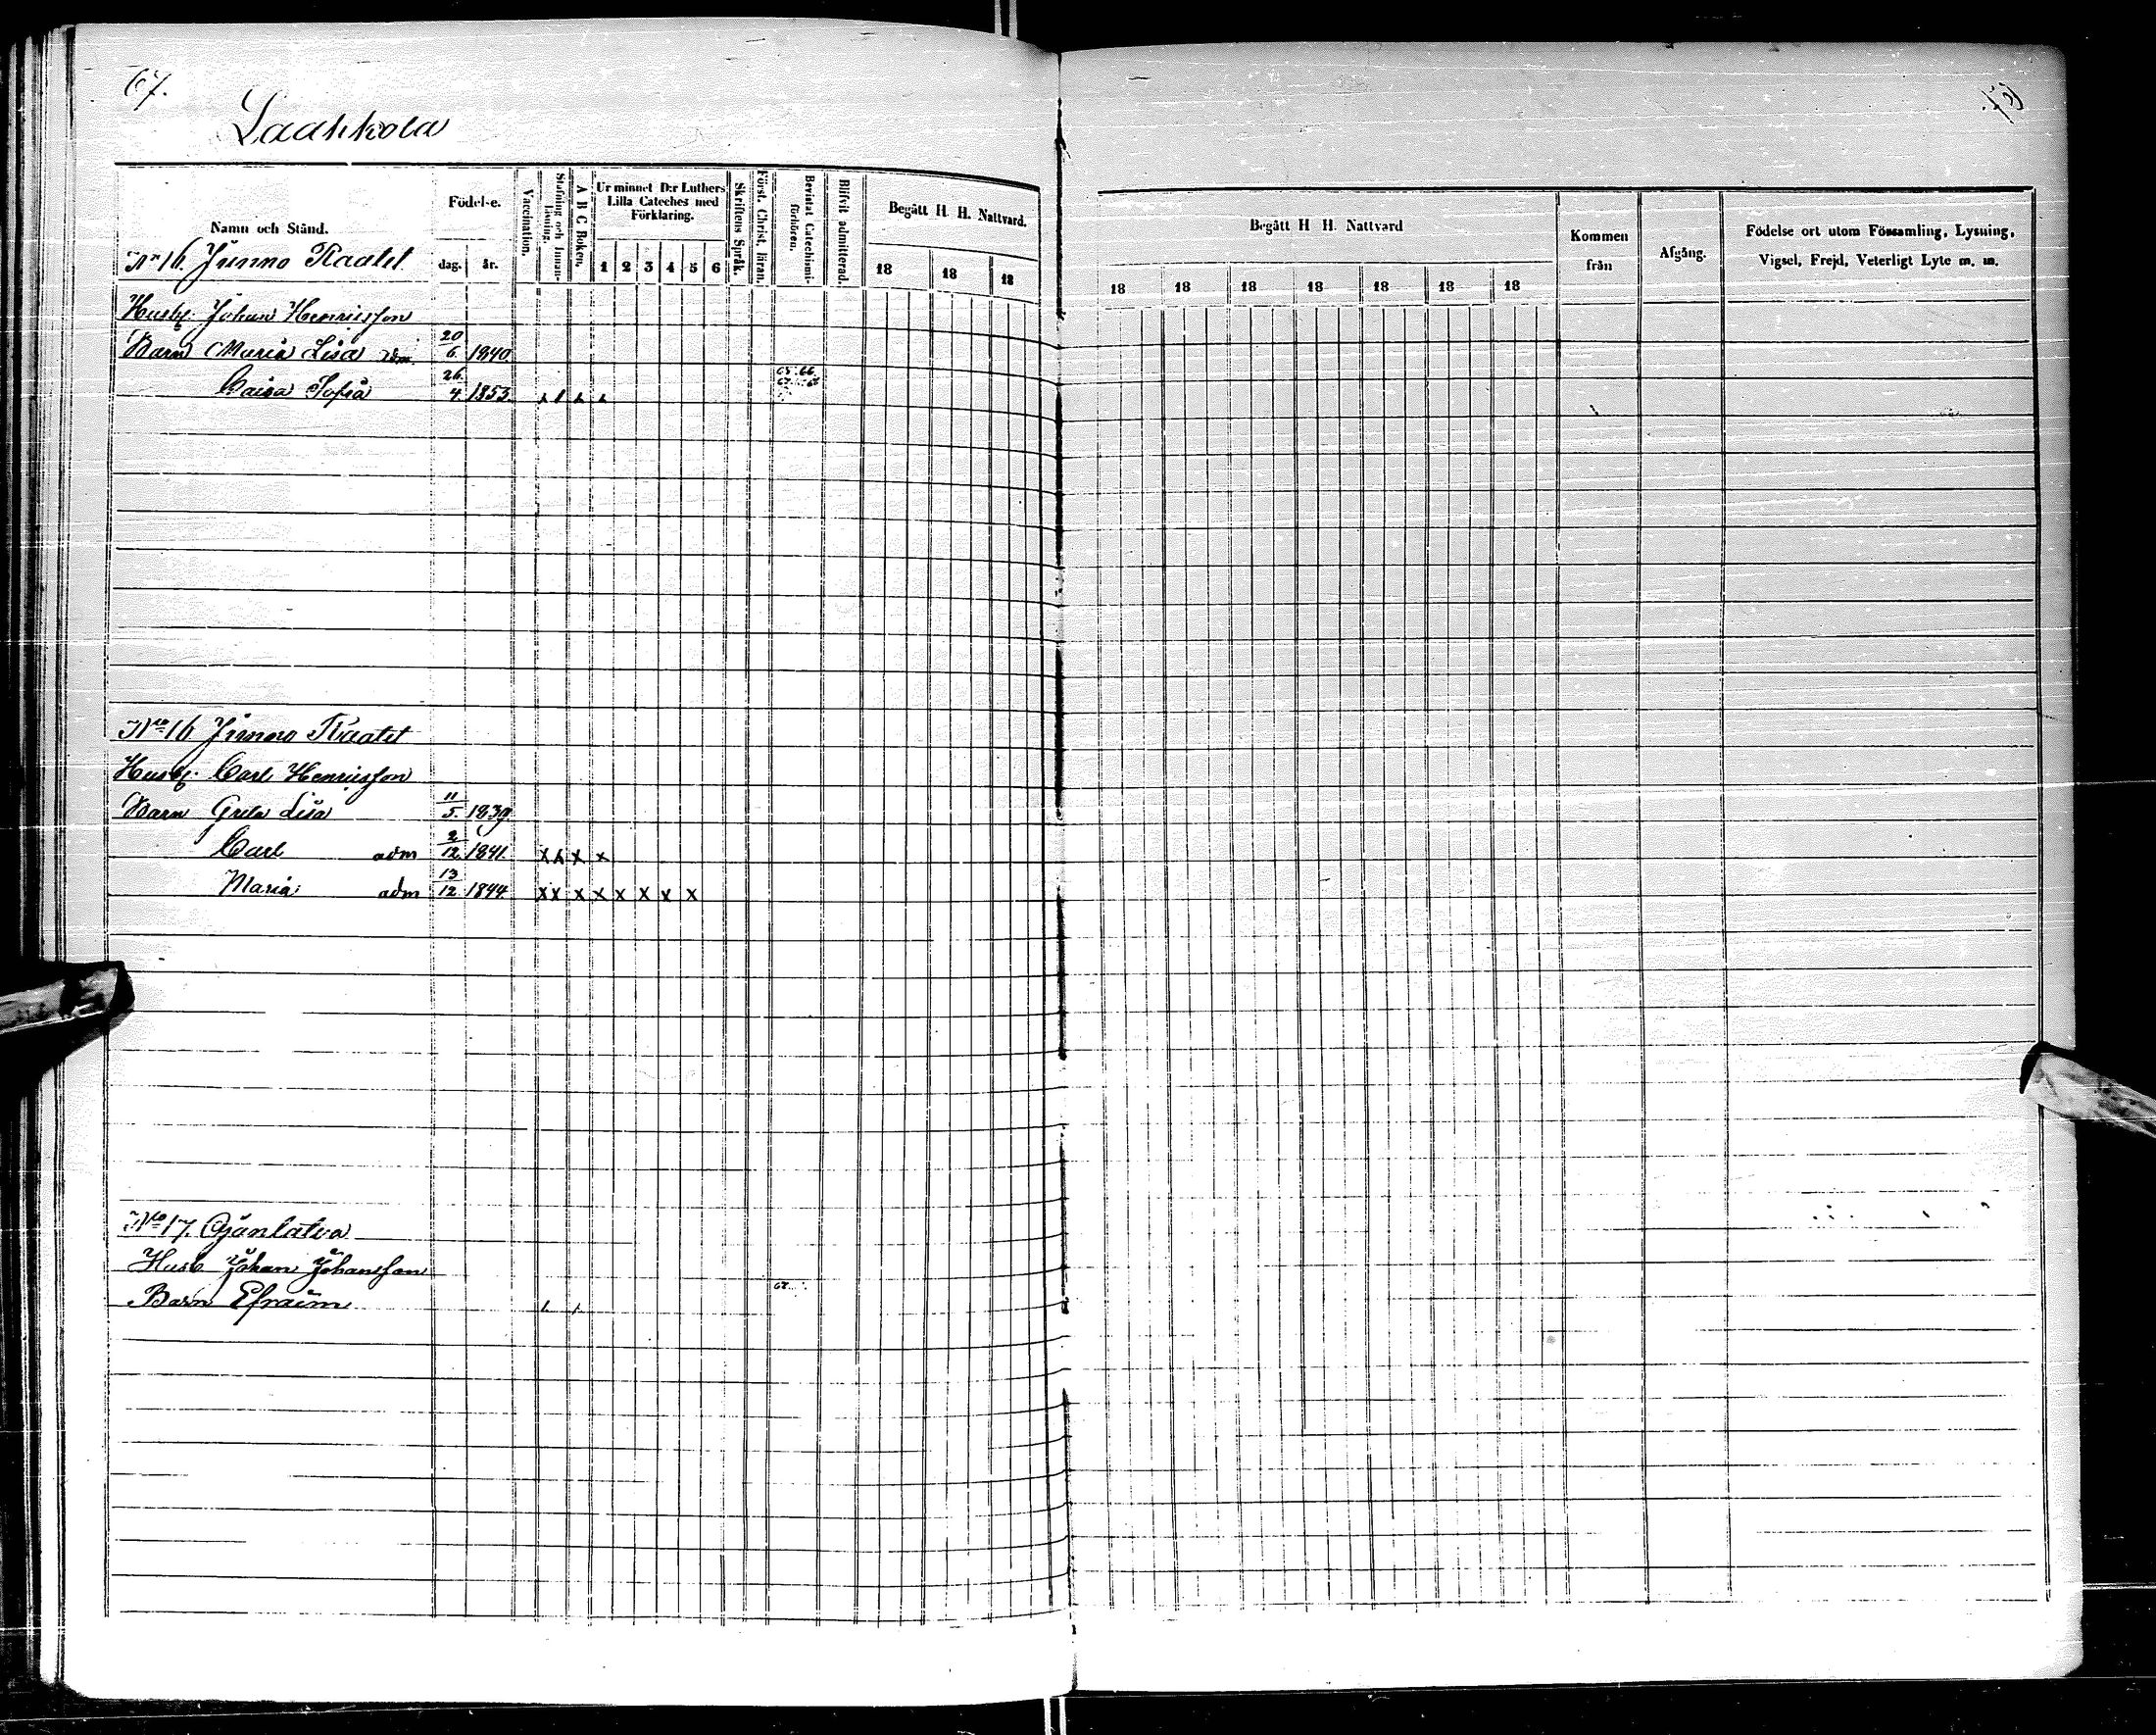 67.
67.
Laahkola
Namn och Stånd.
Födelse.
dag.
år.
Vaccination.
Stafning och Innan-läsning.
A B C Boken.
Ur minnet D:r Luthers
Lilla Cateches med
Förklaring.
1 2 3 4 5 6
Skriftens Språk.
Först. Christ. läran.
Bevistat Catechismi-förhören.
Blifvit admitterad.
Begått H. H. Nattvard.
18 18 18
Begått H H. Nattvard
18 18 18 18 18 18 18
Kommen
från
Afgång.
Födelse ort utom Församling, Lysning,
Vigsel, Frejd, Veterligt Lyte m. m.
No 16. Junno
Husb. Johan Henriksson
Barn Maria Lisa adm 20/6 1840.
Caisa Sofia 26/4 1853. 65. 66.
No 16 Junno
Husb. Carl Henriksson
Barn Greta Lisa 11/5. 1839
Carl adm 2/12 1841. x x x x
Maria adm 13/12 1844. x x x x x x x x
No 17. Ojanlatva
Husb Johan Johansson
Barn Efraim